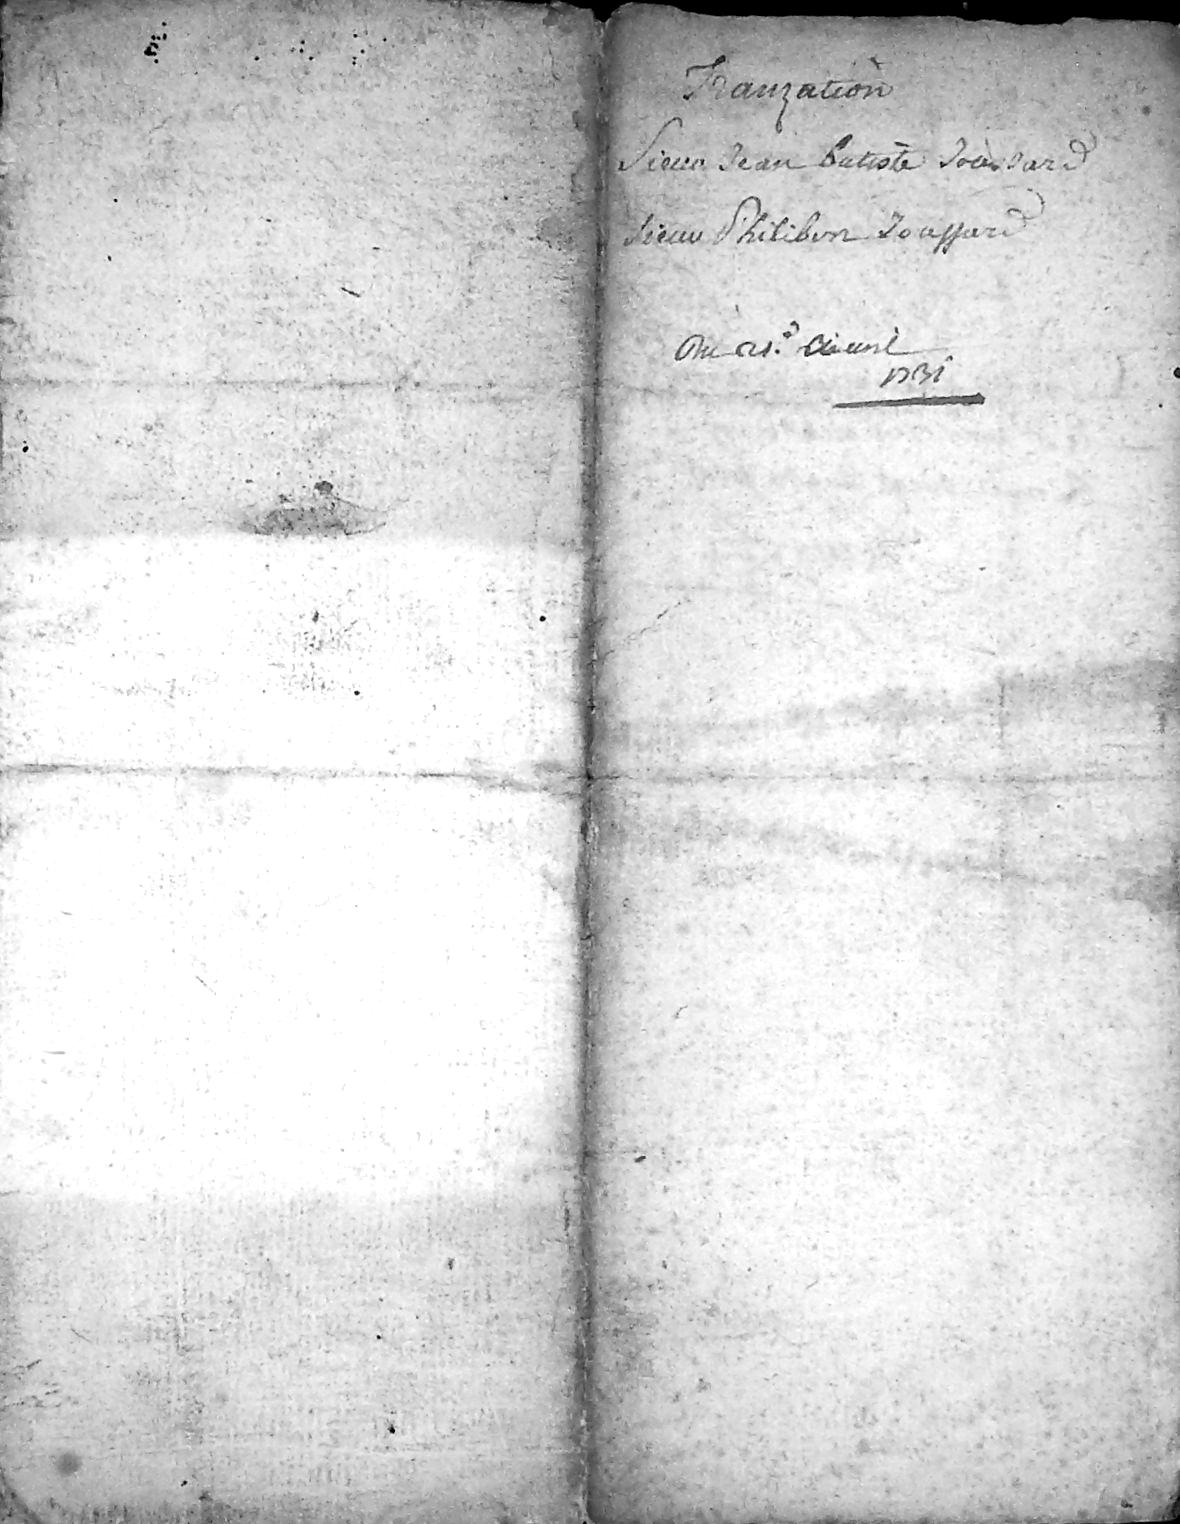 Tranzation
Sieur Jean Batiste Joussard
Sieur Philibert Joussard
Du 21.e Avril
1731